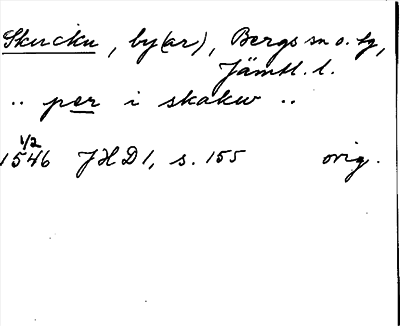 Skucku, by(ar), Bergs sn o. tg,
Jämtl. l.
.. per i skakw ..
1/2
1546 JHD 1, s. 155 orig.